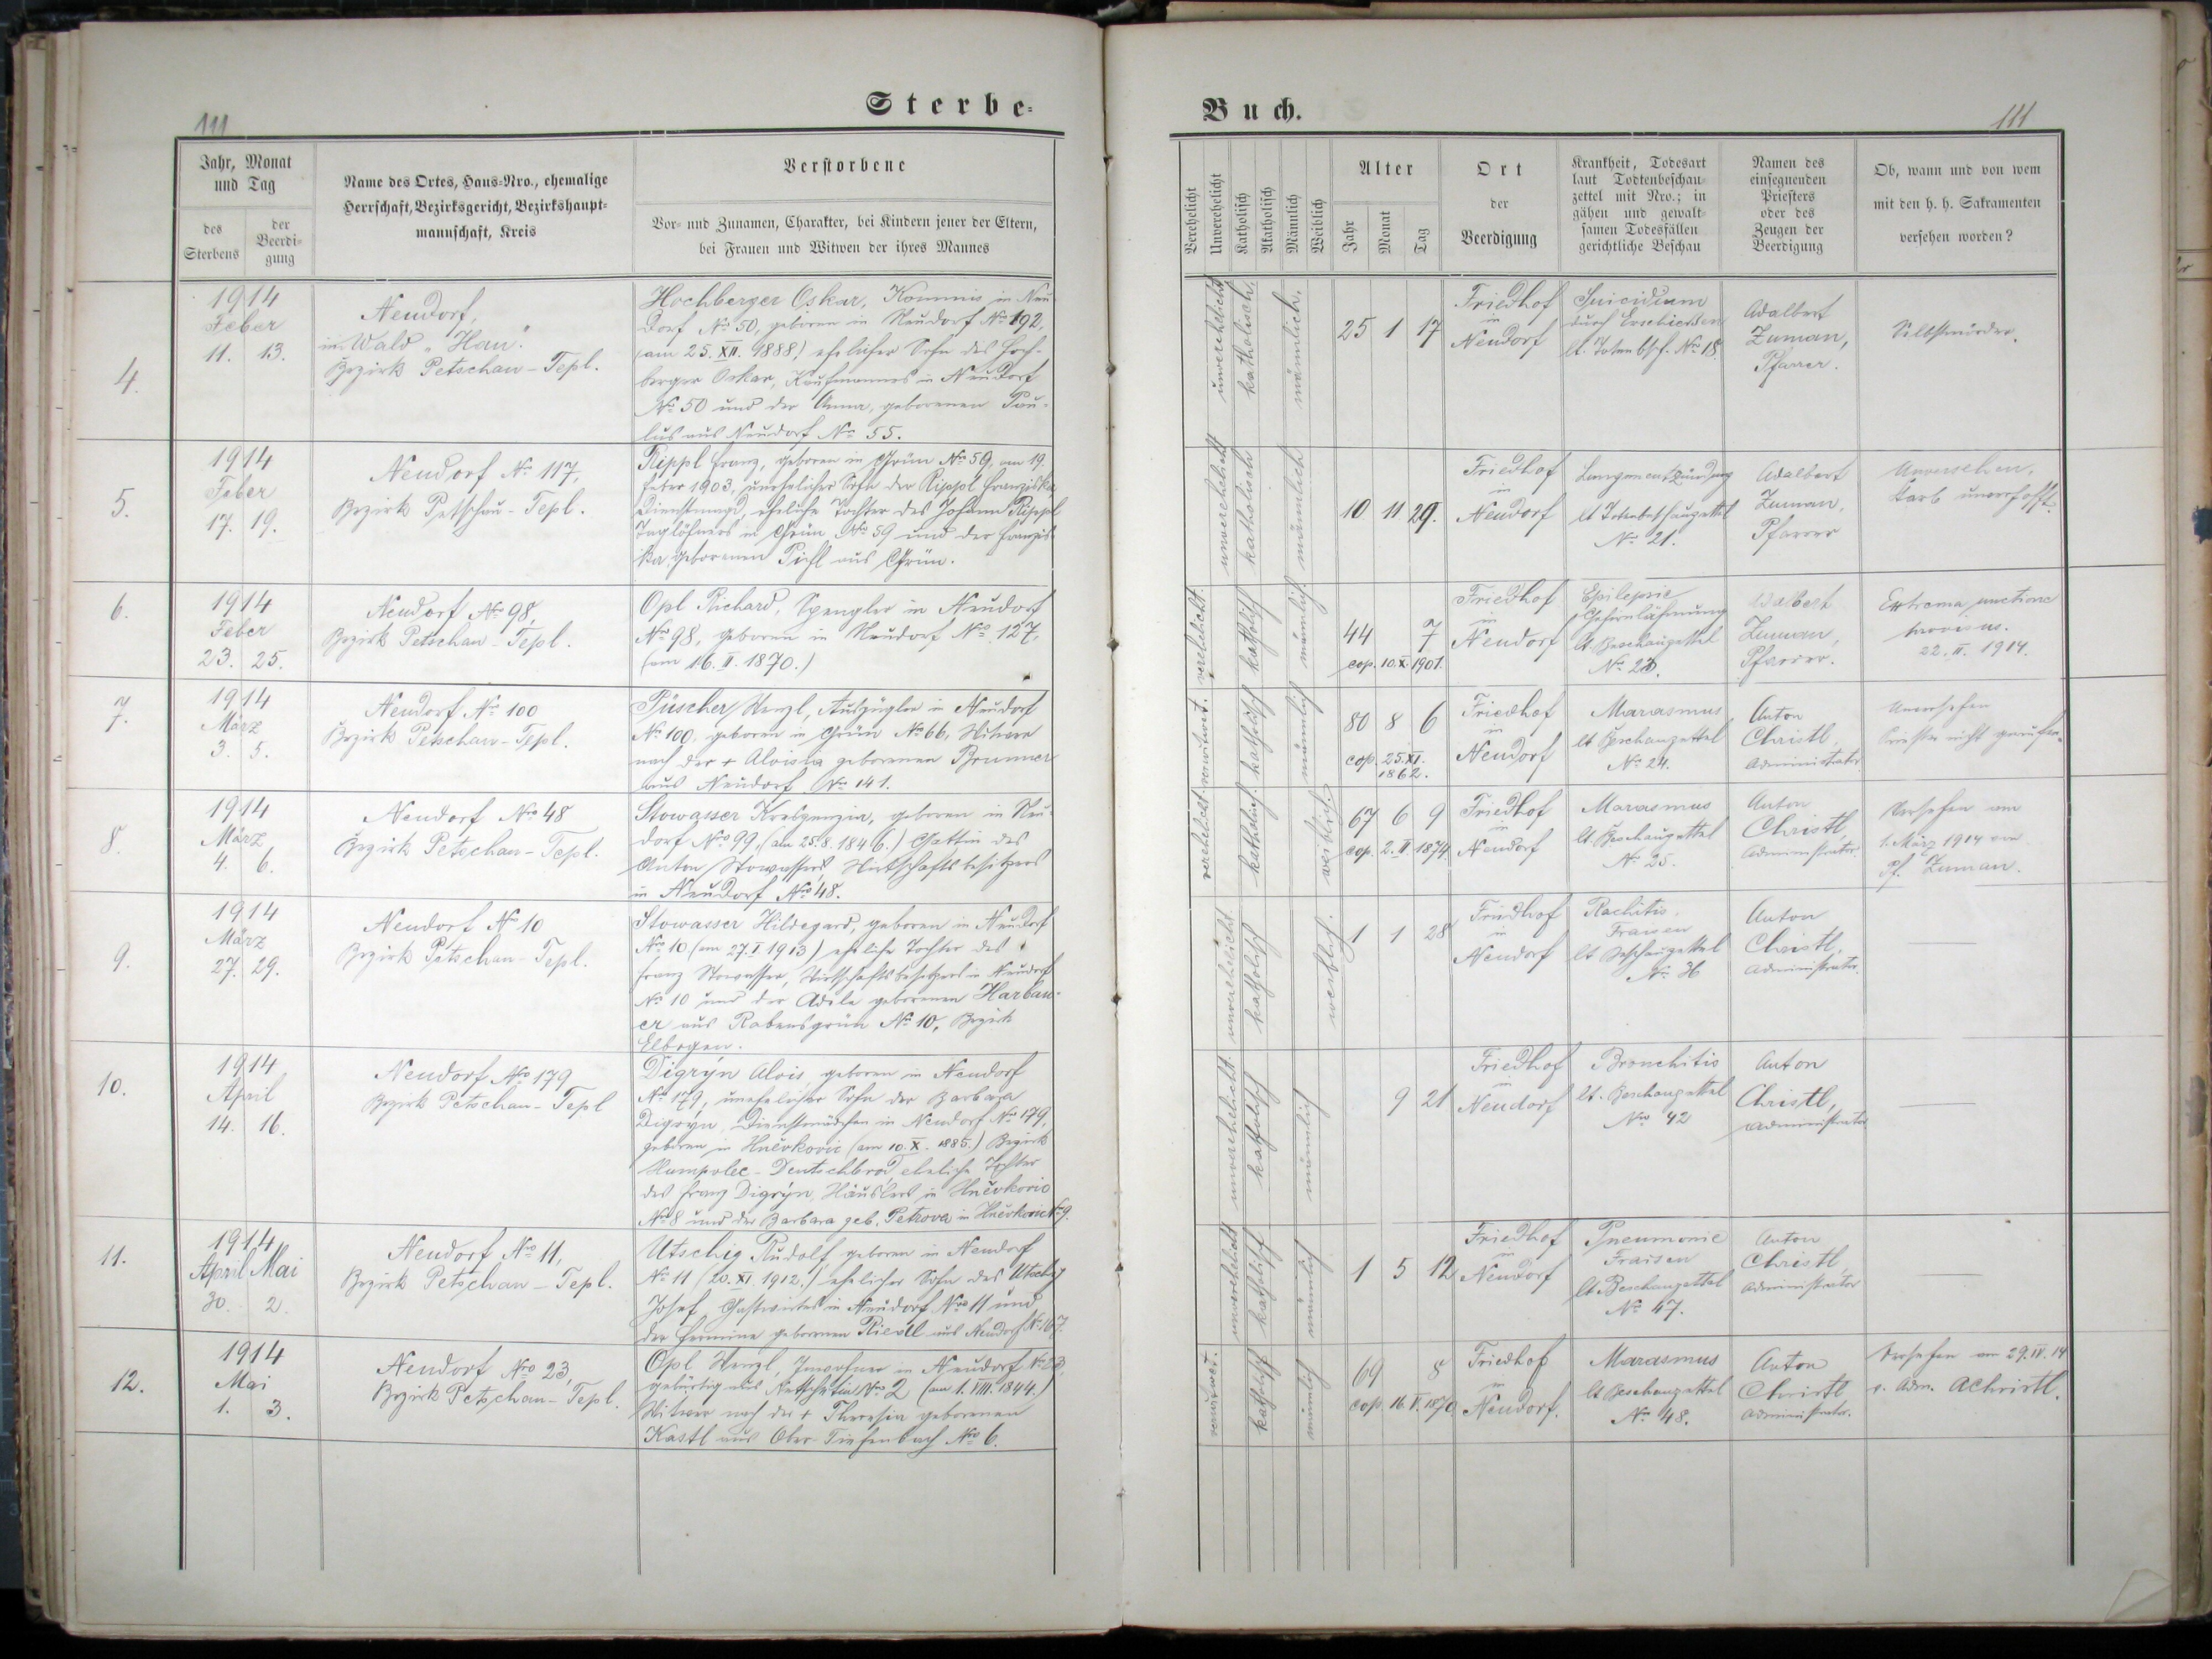 Sterbe-
111
Jahr, Monat
und Tag
des
Sterbens
der
Beerdi-
gung
Name des Ortes, Haus-Nro., ehemalige
Herrschaft, Bezirksgericht, Bezirkshaupt-
mannschaft, Kreis
Verstorbene
Vor- und Zunamen, Charakter, bei Kindern jener der Eltern,
bei Frauen und Witwen der ihres Mannes
4.
1914
Feber
11. 13.
Neudorf,
im Wald "Hau".
Bezirk Petschau-Tepl.
Hochberger Oskar, Kommis in Neu-
dorf No 50, geboren in Neudorf No 192,
(am 25. XII. 1888) ehelicher Sohn des Hoch-
berger Oskar, Kaufmannes in Neudorf
No 50 und der Anna, geborenen Pau-
lus aus Neudorf No 55.
5.
1914
Feber
17. 19.
Neudorf No 117,
Bezirk Petschau-Tepl.
Rippl Franz, geboren in Grün No 59, am 19.
Feber 1903, unehelicher Sohn der Rippl Franziska,
Dienstmagd, eheliche Tochter des Johann Rippl
Taglöhners in Grün No 59 und der Franzis-
ka geborenen Pichl aus Grün.
6.
1914
Feber
23. 25.
Neudorf No 98,
Bezirk Petschau-Tepl.
Opl Richard, Spengler in Neudorf
No 98, geboren in Neudorf No 127,
(am 16. II. 1870.)
7.
1914
März
3. 5.
Neudorf No 100
Bezirk Petschau-Tepl.
Püscher Wenzl, Auszügler in Neudorf
No 100, geboren in Grün No 66, Witwer
nach der + Aloisia geborenen Brunner
aus Neudorf No 141.
8.
1914
März
4. 6.
Neudorf No 48
Bezirk Petschau-Tepl.
Stowasser Kreszenzia, geboren in Neu-
dorf No 99, (am 25. 8. 1846.) Gattin des
Anton Stowasser, Wirtschaftsbesitzers
in Neudorf No 48.
9.
1914
März
27. 29.
Neudorf No 10
Bezirk Petschau-Tepl.
Stowasser Hildegard, geboren in Neudorf
No 10 (am 27. I. 1913) eheliche Tochter des
Franz Stowasser, Wirtschaftsbesitzers in Neudorf
No 10 und der Adele geborenen Harbau-
er aus Rabensgrün No 10, Bezirk
Elbogen.
10.
1914
April
14. 16.
Neudorf No 179
Bezirk Petschau-Tepl
Digrýn Alois, geboren in Neudorf
No 179, unehelicher Sohn der Barbara
Digrýn, Dienstmädchen in Neudorf No 179,
geboren in Hněvkovic (am 10. X. 1885.) Bezirk
Humpolec-Deutschbrod eheliche Tochter
des Franz Digrýn, Häuslers in Hněvkovic
No 8 und der Barbara geb. Petrova in Hněvkovic No 9.
11.
1914
April Mai
30. 2.
Neudorf No 11,
Bezirk Petschau-Tepl.
Utschig Rudolf, geboren in Neudorf
No 11 (20. XI. 1912.) ehelicher Sohn des Utschig
Josef, Gastwirtes in Neudorf No 11 und
der Hermine geborenen Riedl aus Neudorf No 167.
12.
1914
Mai
1. 3.
Neudorf No 23,
Bezirk Petschau-Tepl.
Opl Wenzl, Inwohner in Neudorf No 23,
gebürtig aus No 2 (am 1. VIII. 1844.)
Witwer nach der + Theresia geborenen
Kastl aus Ober-Tiefenbach No 6.
Buch.
111
Verehelicht
Unverehelicht
Katholisch
Akatholisch
Männlich
Weiblich
Alter
Jahr
Monat
Tag
Ort
der
Beerdigung
Krankheit, Todesart
laut Todtenbeschau-
zettel mit Nro.; in
gähen und gewalt-
samen Todesfällen
gerichtliche Beschau
Namen des
einsegnenden
Priesters
oder des
Zeugen der
Beerdigung
Ob, wann und von wem
mit den h. h. Sakramenten
versehen worden?
unverehelicht
katholisch.
männlich.
25 1 17
Friedhof
in
Neudorf
Suicidium
durch Erschießen
lt. Totenbsch. No 18.
Adalbert
Zuman,
Pfarrer.
Selbstmörder.
unverehelicht
katholisch
männlich
10 11 29.
Friedhof
in
Neudorf
Lungenentzündung
lt Totenbeschauzettel
No 21.
Adalbert
Zuman,
Pfarrer
Unversehen,
starb unverhofft.
verehelicht.
katholisch
männlich.
44 7
cop. 10. X. 1901.
Friedhof
in
Neudorf
Epilepsie
Gehirnlähmung
lt. Beschauzettel
No 23.
Adalbert
Zuman,
Pfarrer.
Extrema unctione
provisus.
22. II. 1914.
verwitwet.
katholisch
männlich
80 8 6
cop. 25. XI.
1862.
Friedhof
in
Neudorf
Marasmus
lt Beschauzettel
No 24.
Anton
Christl,
Administrator
Unversehen
Priester nicht gerufen.
verehelicht
katholisch.
weiblich.
67 6 9
cop. 2. II. 1874.
Friedhof
in
Neudorf
Marasmus
lt. Beschauzettel
No 25.
Anton
Christl,
Administrator.
Versehen am
1. März 1914 von
Pf. Zuman.
unverehelicht
katholisch
weiblich.
1 1 28
Friedhof
in
Neudorf
Rachitis,
Fraisen
lt Beschauzettel
No 36
Anton
Christl,
Administrator.
unverehelicht.
katholisch
männlich
9 21
Friedhof
in
Neudorf
Bronchitis
lt. Beschauzettel
No 42
Anton
Christl,
Administrator
unverehelicht
katholisch
männlich
1 5 12
Friedhof
in
Neudorf
Pneumonie
Fraisen
lt Beschauzettel
No 47.
Anton
Christl,
Administrator
verwitwet.
katholisch
männlich
69 8
cop. 16. V. 1870.
Friedhof
in
Neudorf.
Marasmus
lt Beschauzettel
No 48.
Anton
Christl
Administrator.
Versehen am 29. IV. 14
v. Adm. AChristl.